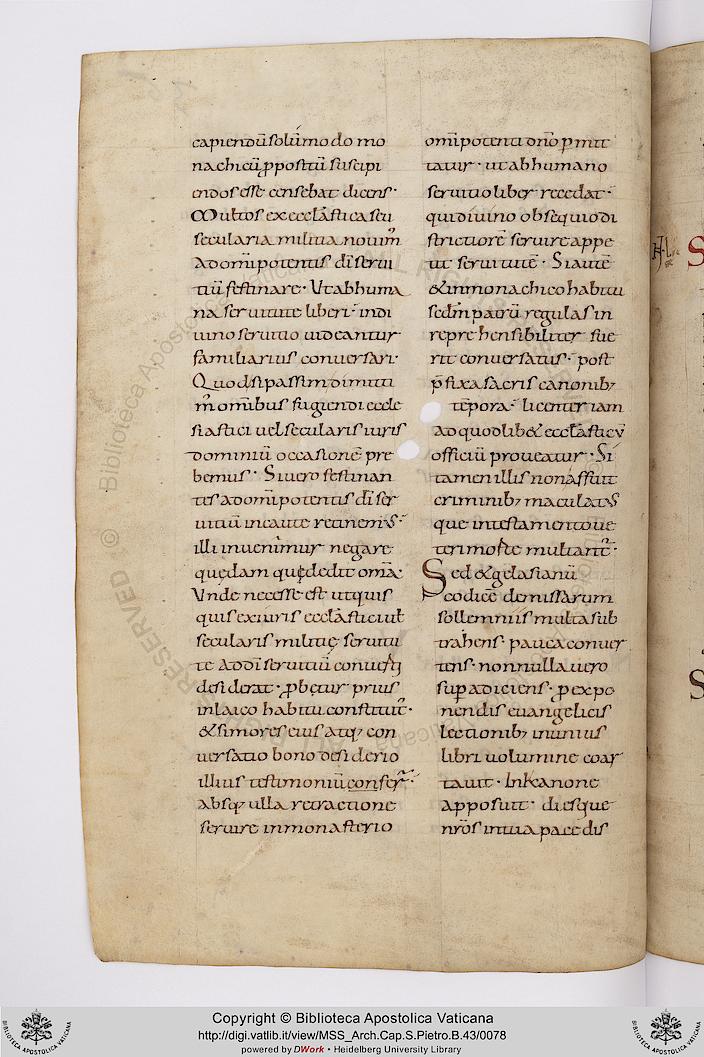 capiendū solūmodo mo
nachicū ꝓpositū suscipi
endos esse censebat dicens·
Multos ex ecclāstica seu
secularia militia nouim᷒
ad omīpotentis dī serui
tiū festinare· Ut ab huma
na seruitute liberi· in di
uino seruitio uideantur
familiarius conuersari·
Quod si passim dimitti
m᷒ omībus fugiendi eccle
siastici uel secularis iuris
dominiū occasionē pre
bemus· Si uero festinan
tes ad omīpotentis dī ser
uitiū incaute retinem᷒·
illi inuenimur negare
quędam qui dedit omīa·
Vnde necesse est ut quis
quis ex iuris ecclāstici uł
secularis militię seruitu
te ad dī seruitiū conuerti
desiderat· ꝓbetur prius
in laico habitu constitut᷒·
& si mores eius atq; con
uersatio bono desiderio
illius testimoniū confer᷒t·
absq; ulla retractione
seruire in monasterio
omīpotenti dn̄o ꝑmit
tatur· ut ab humano
seruitio liber recedat·
qui diuino obsequio di
strictiorē seruire appe
tit seruitutē· Si autē
& in monachico habitu
scdm̄ patrū regulas in
reprehensibiliter fue
rit conuersatus· post
p̄fixa sacris canonib;
tēpora· licenter iam
ad quodlib& ecclāsticū
officiū proueatur· Si
tamen illis non assuit
criminib; maculatus
que in testamento ue
teri morte multant᷒·
Sed & gelasianū
codicē de missarum
sollemniis multa sub
trahens· pauca conuer
tens· nonnulla uero
suꝑadiciens· ꝓ expo
nendis euangelicis
lectionib; in unius
libri uolumine coar
tauit· In kanone
apposuit· diesque
nr̄os in tua pace dis
Copyright © Biblioteca Apostolica Vaticana
http://digi.vatlib.it/view/MSS_Arch.Cap.S.Pietro.B.43/0078
powered by DWork • Heidelberg University Library